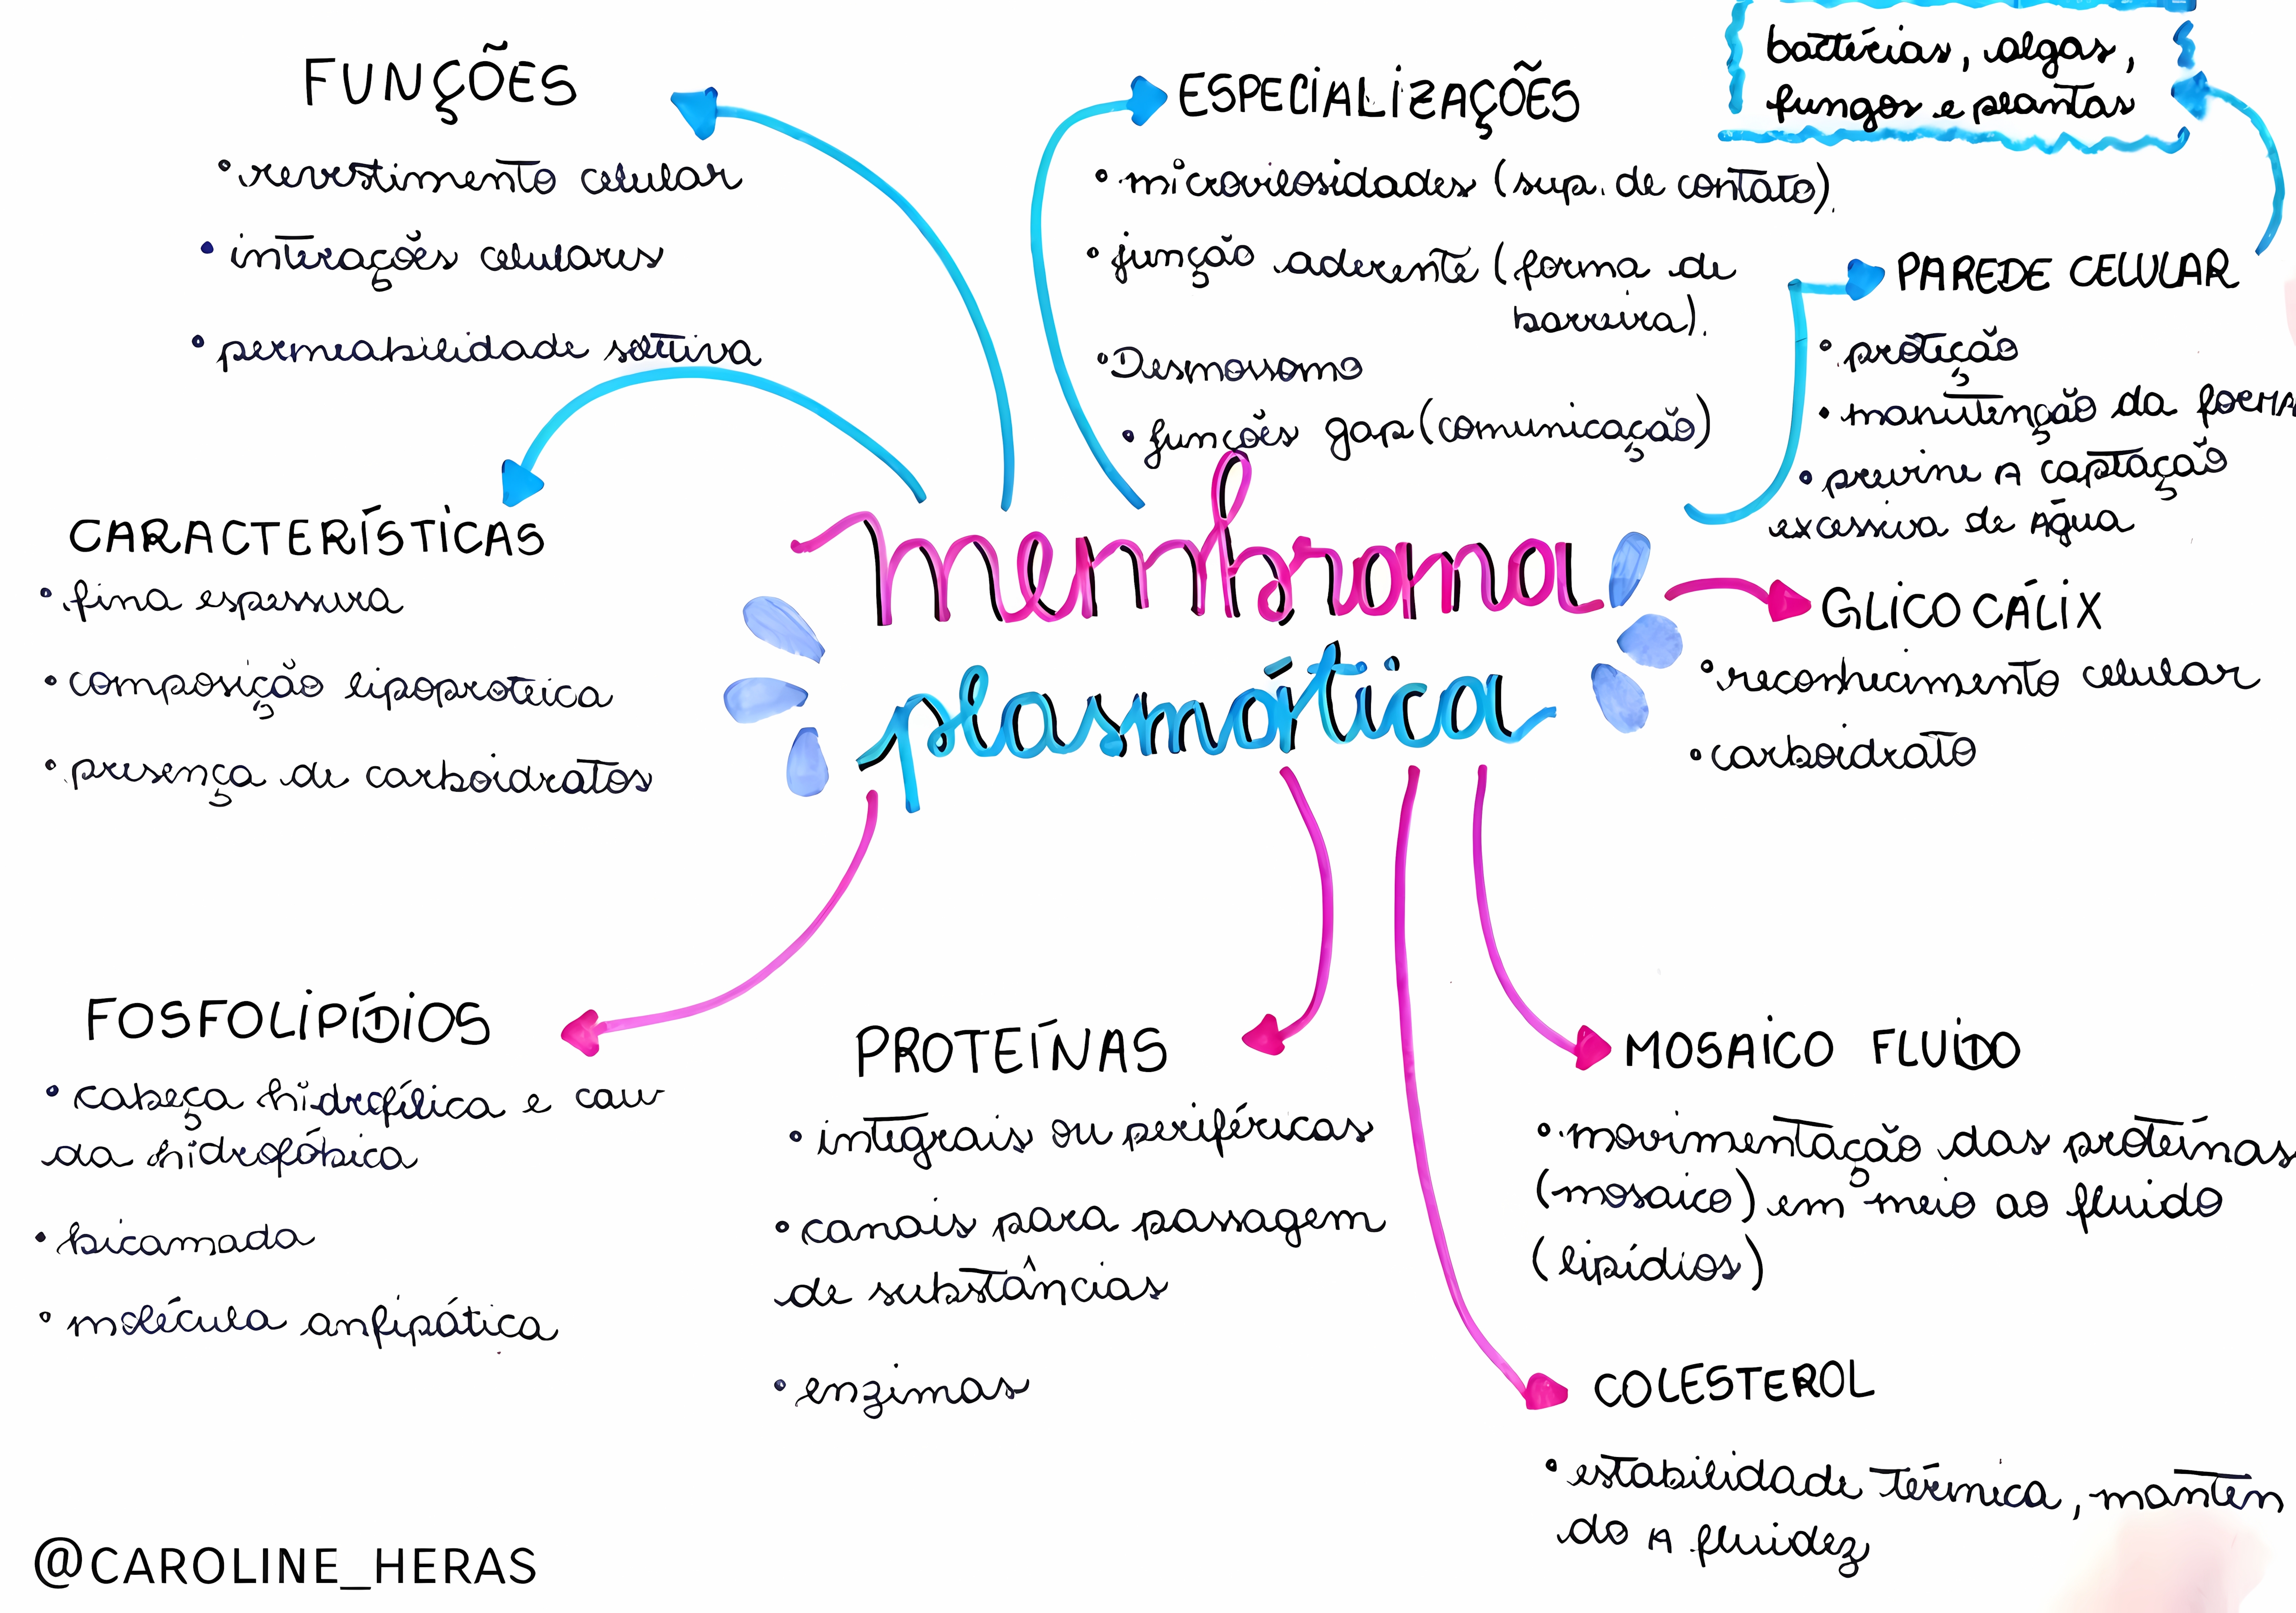 FUNÇÕES
• revestimento celular
• interações celulares
• permeabilidade seletiva
ESPECIALIZAÇÕES
• microvilosidades (sup. de contato).
• junção aderente (forma de
barreira).
• Desmossomo
• funções gap (comunicação)
bactérias, algas,
fungos e plantas
PAREDE CELULAR
• proteção
• manutenção da forma
• previne a captação
excessiva de água
CARACTERÍSTICAS
• fina espessura
• composição lipoproteica
• presença de carboidratos
membrana
plasmática
GLICOCÁLIX
• reconhecimento celular
• carboidrato
FOSFOLIPÍDIOS
• cabeça hidrofílica e cau
da hidrofóbica
• bicamada
• molécula anfipática
PROTEÍNAS
• integrais ou periféricas
• canais para passagem
de substâncias
• enzimas
MOSAICO FLUIDO
• movimentação das proteínas
(mosaico) em meio ao fluido
(lipídios)
COLESTEROL
• estabilidade térmica, manten
do a fluidez
@CAROLINE_HERAS